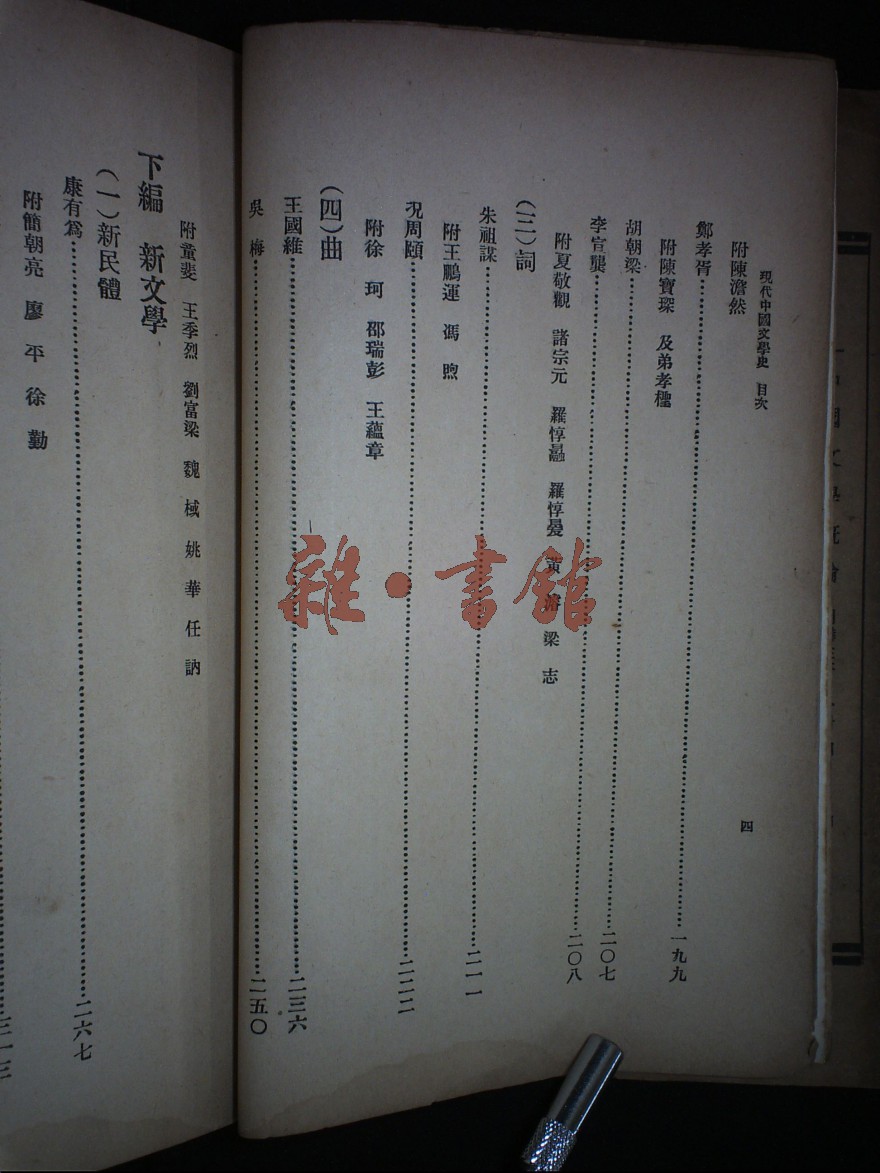 現代中國文學史 目次
四
附陳澹然
鄭孝胥……一九九
附陳寶琛 及弟孝檉
胡朝梁……二〇七
李宣龔……二〇八
附夏敬觀 諸宗元 羅惇曧 羅惇㬊 黃 濬 梁 志
(三)詞
朱祖謀……二一一
附王鵬運 馮 煦
況周頤……二二二
附徐 珂 邵瑞彭 王蘊章
(四)曲
王國維……二三六
吳 梅……二五〇
附童斐 王季烈 劉富梁 魏 棫 姚 華 任 訥
下編 新文學
(一)新民體
康有爲……二六七
附簡朝亮 廖 平 徐 勤
三一三
雜·書館